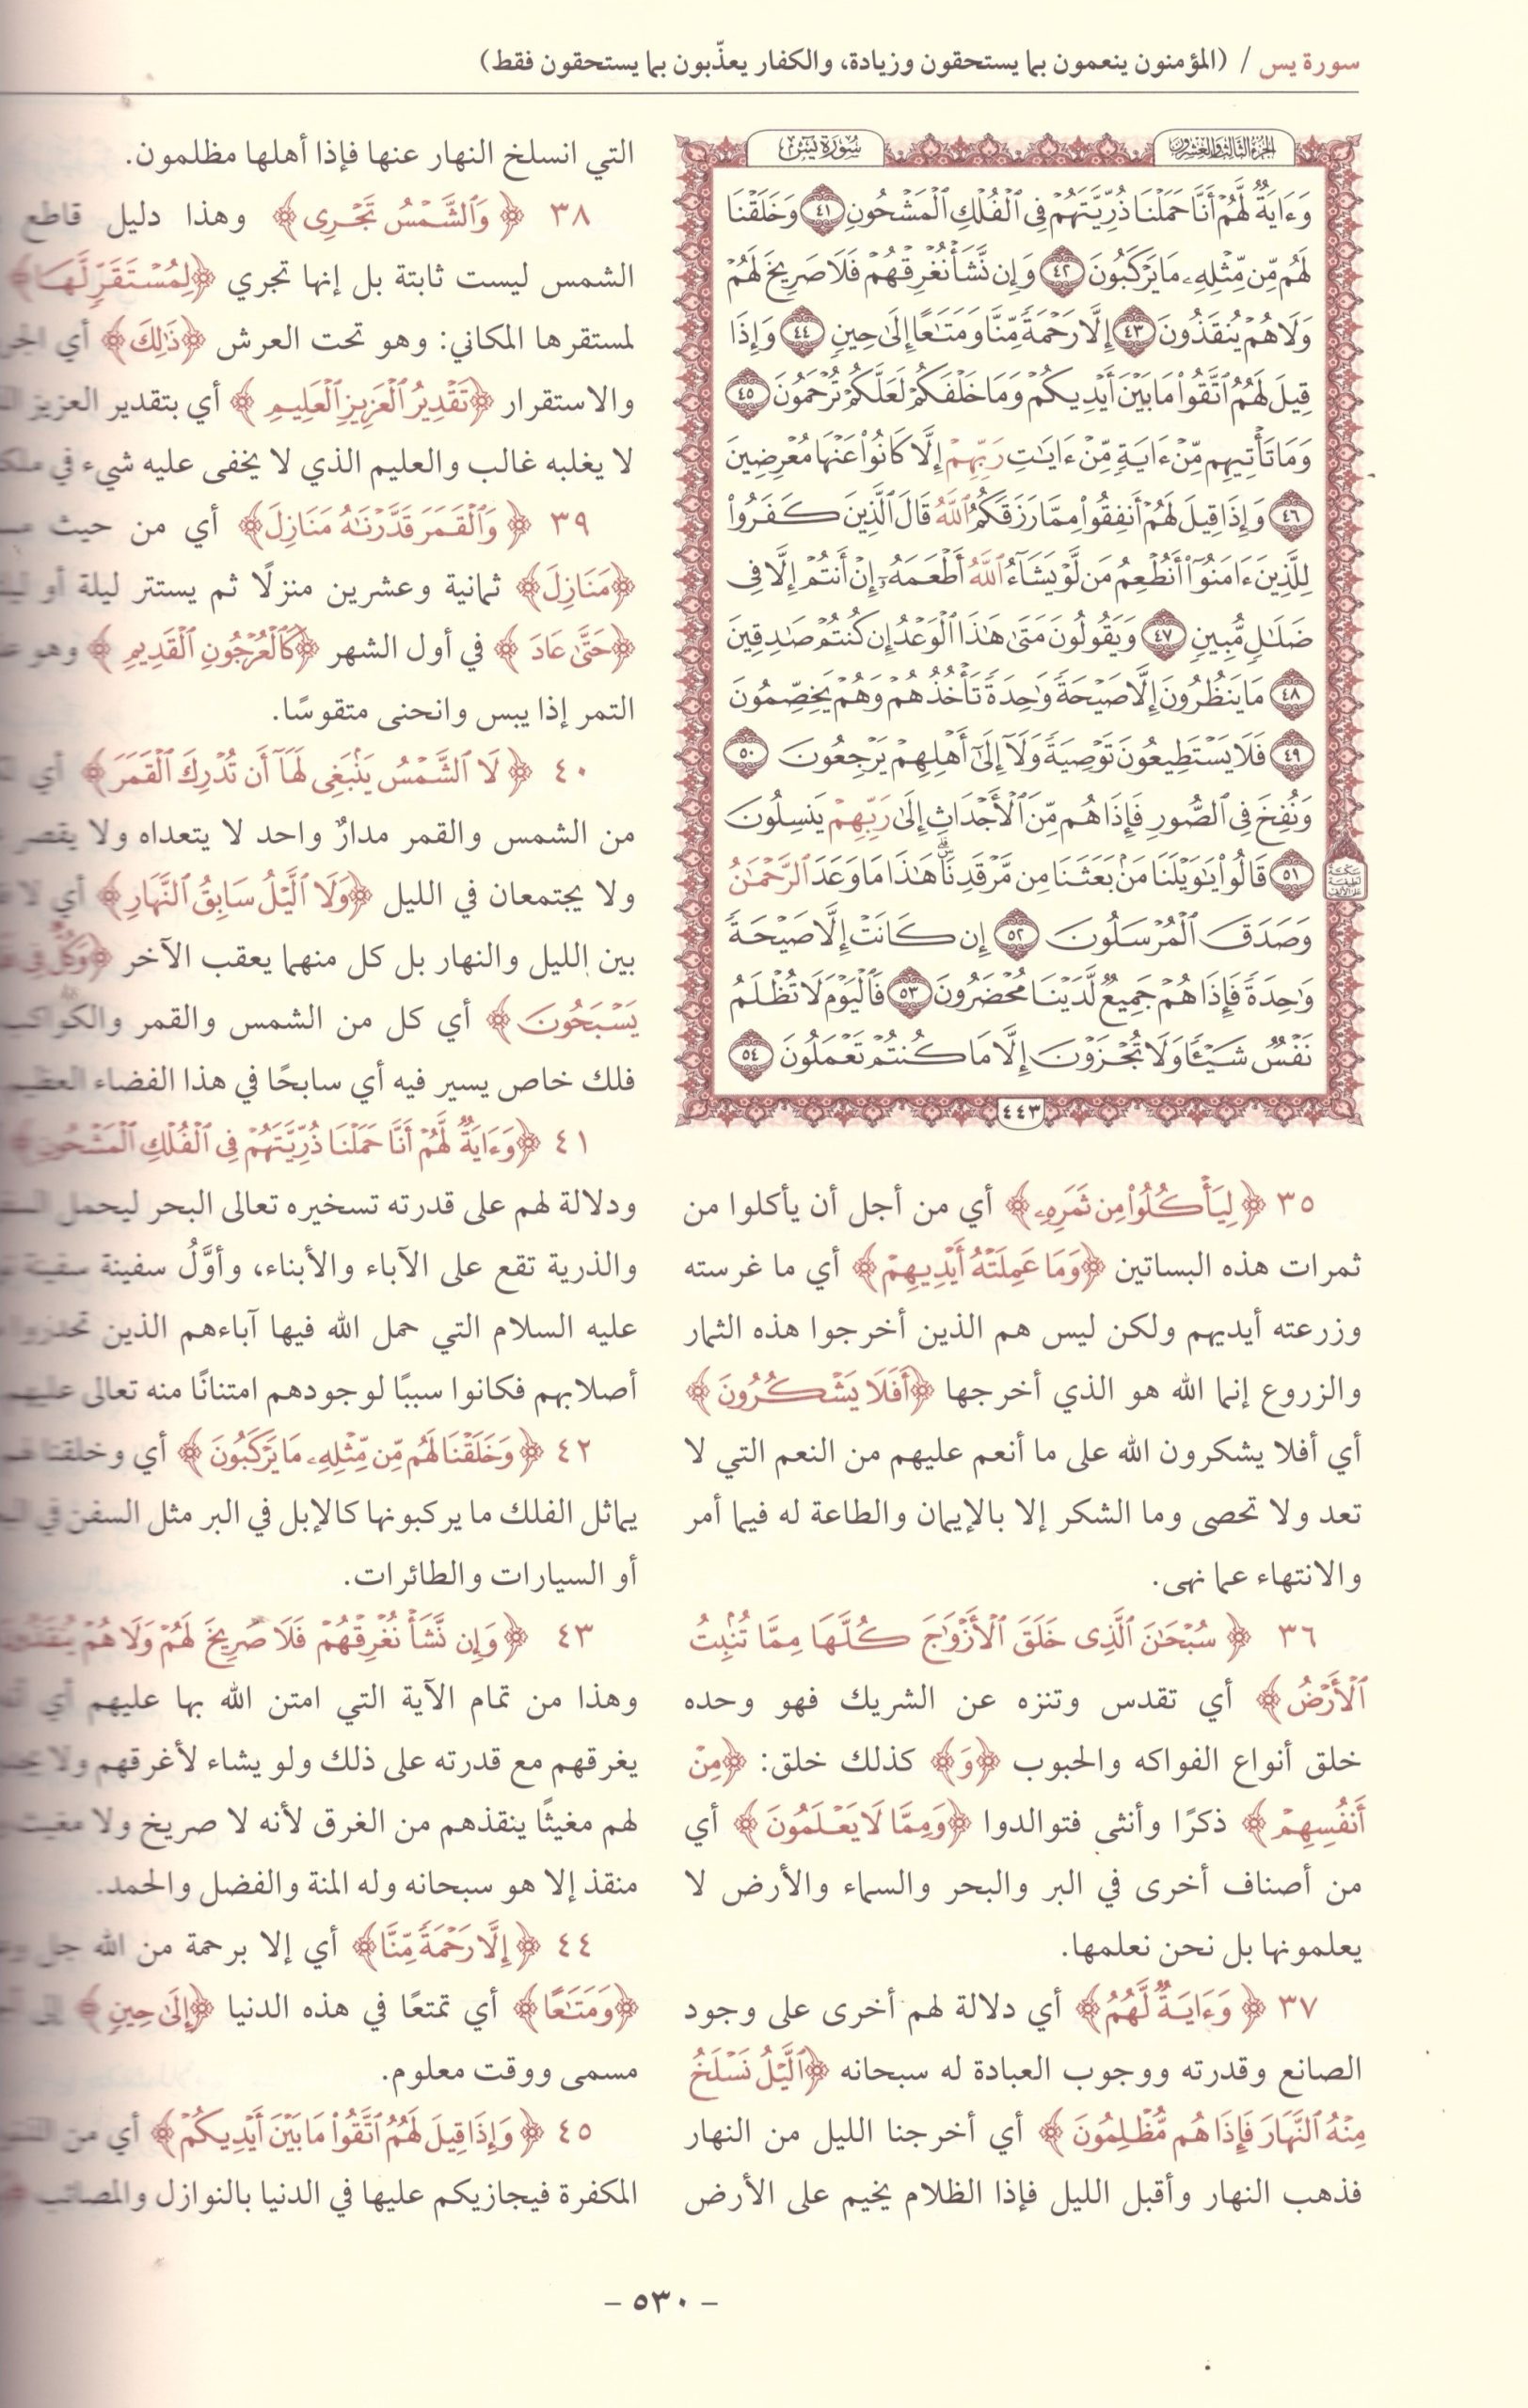 سورة يس / (المؤمنون ينعمون بما يستحقون وزيادة، والكفار يعذّبون بما يستحقون فقط)
الجزء الثالث والعشرون
سورة يس
وَءَايَةٌ لَّهُمْ أَنَّا حَمَلْنَا ذُرِّيَّتَهُمْ فِى ٱلْفُلْكِ ٱلْمَشْحُونِ ٤١ وَخَلَقْنَا
لَهُم مِّن مِّثْلِهِۦ مَا يَرْكَبُونَ ٤٢ وَإِن نَّشَأْ نُغْرِقْهُمْ فَلَا صَرِيخَ لَهُمْ
وَلَا هُمْ يُنقَذُونَ ٤٣ إِلَّا رَحْمَةً مِّنَّا وَمَتَٰعًا إِلَىٰ حِينٍ ٤٤ وَإِذَا
قِيلَ لَهُمُ ٱتَّقُوا۟ مَا بَيْنَ أَيْدِيكُمْ وَمَا خَلْفَكُمْ لَعَلَّكُمْ تُرْحَمُونَ ٤٥
وَمَا تَأْتِيهِم مِّنْ ءَايَةٍ مِّنْ ءَايَٰتِ رَبِّهِمْ إِلَّا كَانُوا۟ عَنْهَا مُعْرِضِينَ
٤٦ وَإِذَا قِيلَ لَهُمْ أَنفِقُوا۟ مِمَّا رَزَقَكُمُ ٱللَّهُ قَالَ ٱلَّذِينَ كَفَرُوا۟
لِلَّذِينَ ءَامَنُوٓا۟ أَنُطْعِمُ مَن لَّوْ يَشَآءُ ٱللَّهُ أَطْعَمَهُۥٓ إِنْ أَنتُمْ إِلَّا فِى
ضَلَٰلٍ مُّبِينٍ ٤٧ وَيَقُولُونَ مَتَىٰ هَٰذَا ٱلْوَعْدُ إِن كُنتُمْ صَٰدِقِينَ
٤٨ مَا يَنظُرُونَ إِلَّا صَيْحَةً وَٰحِدَةً تَأْخُذُهُمْ وَهُمْ يَخِصِّمُونَ
٤٩ فَلَا يَسْتَطِيعُونَ تَوْصِيَةً وَلَآ إِلَىٰٓ أَهْلِهِمْ يَرْجِعُونَ ٥٠
وَنُفِخَ فِى ٱلصُّورِ فَإِذَا هُم مِّنَ ٱلْأَجْدَاثِ إِلَىٰ رَبِّهِمْ يَنسِلُونَ
٥١ قَالُوا۟ يَٰوَيْلَنَا مَنۢ بَعَثَنَا مِن مَّرْقَدِنَا ۜ هَٰذَا مَا وَعَدَ ٱلرَّحْمَٰنُ
وَصَدَقَ ٱلْمُرْسَلُونَ ٥٢ إِن كَانَتْ إِلَّا صَيْحَةً
وَٰحِدَةً فَإِذَا هُمْ جَمِيعٌ لَّدَيْنَا مُحْضَرُونَ ٥٣ فَٱلْيَوْمَ لَا تُظْلَمُ
نَفْسٌ شَيْـًٔا وَلَا تُجْزَوْنَ إِلَّا مَا كُنتُمْ تَعْمَلُونَ ٥٤
٤٤٣
٣٥ ﴿لِيَأْكُلُوا۟ مِن ثَمَرِهِۦ﴾ أي من أجل أن يأكلوا من
ثمرات هذه البساتين ﴿وَمَا عَمِلَتْهُ أَيْدِيهِمْ﴾ أي ما غرسته
وزرعته أيديهم ولكن ليس هم الذين أخرجوا هذه الثمار
والزروع إنما الله هو الذي أخرجها ﴿أَفَلَا يَشْكُرُونَ﴾
أي أفلا يشكرون الله على ما أنعم عليهم من النعم التي لا
تعد ولا تحصى وما الشكر إلا بالإيمان والطاعة له فيما أمر
والانتهاء عما نهى.
٣٦ ﴿سُبْحَٰنَ ٱلَّذِى خَلَقَ ٱلْأَزْوَٰجَ كُلَّهَا مِمَّا تُنۢبِتُ
ٱلْأَرْضُ﴾ أي تقدس وتنزه عن الشريك فهو وحده
خلق أنواع الفواكه والحبوب ﴿وَ﴾ كذلك خلق: ﴿مِنْ
أَنفُسِهِمْ﴾ ذكرًا وأنثى فتوالدوا ﴿وَمِمَّا لَا يَعْلَمُونَ﴾ أي
من أصناف أخرى في البر والبحر والسماء والأرض لا
يعلمونها بل نحن نعلمها.
٣٧ ﴿وَءَايَةٌ لَّهُمُ﴾ أي دلالة لهم أخرى على وجود
الصانع وقدرته ووجوب العبادة له سبحانه ﴿ٱلَّيْلُ نَسْلَخُ
مِنْهُ ٱلنَّهَارَ فَإِذَا هُم مُّظْلِمُونَ﴾ أي أخرجنا الليل من النهار
فذهب النهار وأقبل الليل فإذا الظلام يخيم على الأرض
التي انسلخ النهار عنها فإذا أهلها مظلمون.
٣٨ ﴿وَٱلشَّمْسُ تَجْرِى﴾ وهذا دليل قاطع
الشمس ليست ثابتة بل إنها تجري ﴿لِمُسْتَقَرٍّ لَّهَا﴾
لمستقرها المكاني: وهو تحت العرش ﴿ذَٰلِكَ﴾ أي
والاستقرار ﴿تَقْدِيرُ ٱلْعَزِيزِ ٱلْعَلِيمِ﴾ أي بتقدير العزيز
لا يغلبه غالب والعليم الذي لا يخفى عليه شيء في
٣٩ ﴿وَٱلْقَمَرَ قَدَّرْنَٰهُ مَنَازِلَ﴾ أي من حيث
﴿مَنَازِلَ﴾ ثمانية وعشرين منزلًا ثم يستتر ليلة أو
﴿حَتَّىٰ عَادَ﴾ في أول الشهر ﴿كَٱلْعُرْجُونِ ٱلْقَدِيمِ﴾ وهو
التمر إذا يبس وانحنى متقوسًا.
٤٠ ﴿لَا ٱلشَّمْسُ يَنۢبَغِى لَهَآ أَن تُدْرِكَ ٱلْقَمَرَ﴾ أي
من الشمس والقمر مدارٌ واحد لا يتعداه ولا يقصر
ولا يجتمعان في الليل ﴿وَلَا ٱلَّيْلُ سَابِقُ ٱلنَّهَارِ﴾ أي
بين الليل والنهار بل كل منهما يعقب الآخر ﴿وَكُلٌّ فِى
يَسْبَحُونَ﴾ أي كل من الشمس والقمر والكواكب
فلك خاص يسير فيه أي سابحًا في هذا الفضاء العظيم
٤١ ﴿وَءَايَةٌ لَّهُمْ أَنَّا حَمَلْنَا ذُرِّيَّتَهُمْ فِى ٱلْفُلْكِ ٱلْمَشْحُونِ﴾
ودلالة لهم على قدرته تسخيره تعالى البحر ليحمل
والذرية تقع على الآباء والأبناء، وأوَّلُ سفينة سفينة
عليه السلام التي حمل الله فيها آباءهم الذين
أصلابهم فكانوا سببًا لوجودهم امتنانًا منه تعالى عليهم
٤٢ ﴿وَخَلَقْنَا لَهُم مِّن مِّثْلِهِۦ مَا يَرْكَبُونَ﴾ أي وخلقنا
يماثل الفلك ما يركبونها كالإبل في البر مثل السفن في
أو السيارات والطائرات.
٤٣ ﴿وَإِن نَّشَأْ نُغْرِقْهُمْ فَلَا صَرِيخَ لَهُمْ وَلَا هُمْ يُنقَذُونَ
وهذا من تمام الآية التي امتن الله بها عليهم أي
يغرقهم مع قدرته على ذلك ولو يشاء لأغرقهم ولا
لهم مغيثًا ينقذهم من الغرق لأنه لا صريخ ولا مغيث
منقذ إلا هو سبحانه وله المنة والفضل والحمد.
٤٤ ﴿إِلَّا رَحْمَةً مِّنَّا﴾ أي إلا برحمة من الله جل
﴿وَمَتَٰعًا﴾ أي تمتعًا في هذه الدنيا ﴿إِلَىٰ حِينٍ﴾ إلى
مسمى ووقت معلوم.
٤٥ ﴿وَإِذَا قِيلَ لَهُمُ ٱتَّقُوا۟ مَا بَيْنَ أَيْدِيكُمْ﴾ أي من
المكفرة فيجازيكم عليها في الدنيا بالنوازل والمصائب
- ٥٣٠ -